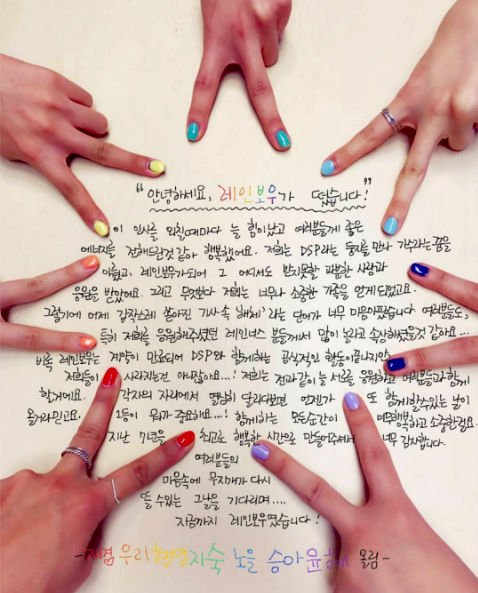 "안녕하세요, 레인보우가 떴습니다!"
이 인사를 외칠때마다 늘 힘이났고 여러분들게 좋은
에너지를 전해드린것 같아 행복했어요. 저희는 DSP라는 둥지를 만나 가수라는 꿈을
이뤘고, 레인보우가되어 그 어디서도 받지못할 과분한 사랑과
응원을 받았어요. 그리고 무엇보다 저희는 너무나 소중한 가족을 얻게되었고요.
그렇기에 어제 갑작스레 쏟아진 기사 속 '해체'라는 단어가 너무 마음아팠습니다 여러분들도,
특히 저희를 응원해주셨던 레인너스 분들께서 많이 놀라고 속상해셨을것 같아요...
비록 레인보우는 계약이 만료되어 DSP와 함께하는 공식적인 활동이 끝나지만
저희들이 사라지는건 아니잖아요...! 저희는 전과 같이 늘 서로를 응원하고 여러분들과 함께
할거에요. 각자의 자리에서 열심히 달리다보면 언젠가 또 함께할수있는 날이
올거라믿고요. 1등이 뭐가 중요하요...! 함께하는 모든순간이 너무행복하고 소중한걸요.
지난 7년을 최고로 행복한 시간으로 만들어주셔서 너무 감사합니다.
여러분들의
마음속에 무지개가 다시
뜰 수있는 그날을 기다리며....
지금까지 레인보우였습니다!
- 재경 우리 현영 지숙 노을 승아 윤혜 올림 -